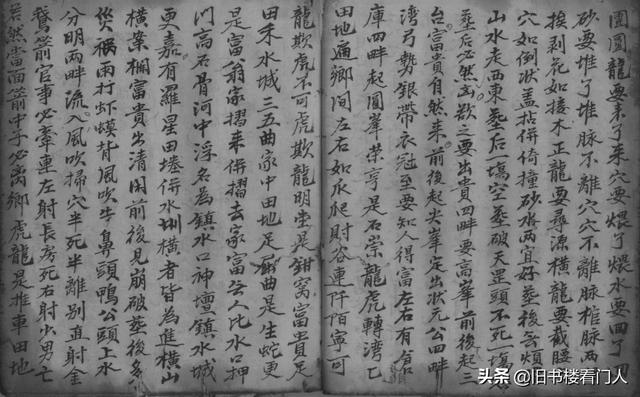 圆圆龍要束了束穴要圆人圆水要回了回
砂要堆了堆脉不離穴穴不離脉棺脉两
挨剥花如接木正龍要尋源横龍要截腰
穴如倒状盖拈併倚撞砂水两宜好塟後無煩
山水走西東塟后一塲空塟破天罡頭不死一塲
塟后必然凶欲之要出貴四畔要高峯前後起三
台富貴自然来前後起尖峯定出状元公四畔
湾弓勢銀帶衣冠至要知人得富左右有倉
庫四畔起圓峯荣亨是石崇龍虎轉湾已
田地遍鄉间左右如爪爬財谷連阡陌寧可
龍欺虎不可虎欺龍明堂是鉗窩富貴足
田禾水城三五曲家中田地足屈曲是生蛇更
是富翁家摺来併摺去家富無人比水口押
門高石骨河中浮名為鎮水口神壇鎮水城
更嘉有羅星田埢併水圳横者皆為進横山
横案欄富貴出清闲前後見崩破塟後多
災禍雨打虾蟆背風吹牛鼻頭鴨公頭上水
分明两畔流入風吹掃穴半死半離别直射金
鵞箭官事必牽連左射長房死右射少男亡
若然當面箭中子必离鄉虎龍是推車田地
头条 @旧书楼看门人